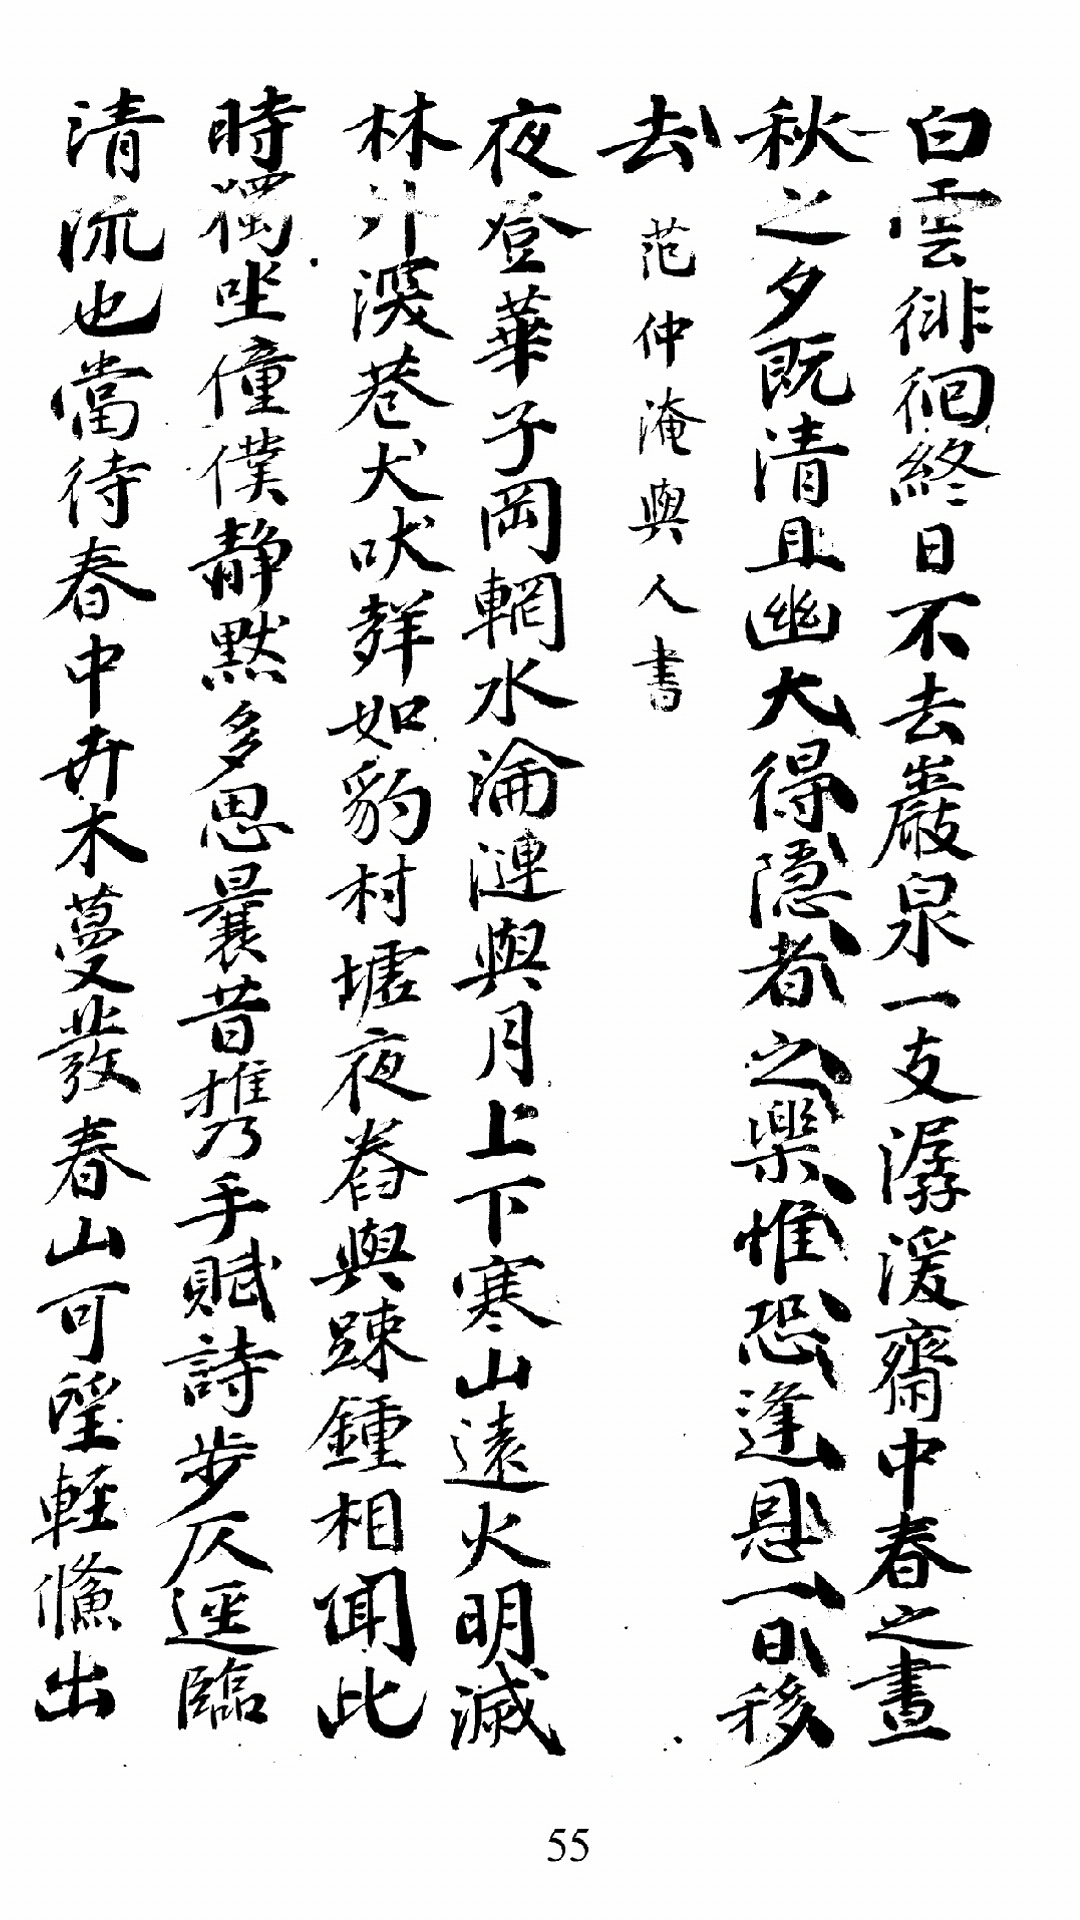 白雲徘徊終日不去巖泉一支潺湲齋中春之晝
秋之夕既清且幽大得隱者之樂惟恐逢恩一日移
去 范仲淹與人書
夜登華子岡輞水淪漣與月上下寒山遠火明滅
林外深巷犬吠聲如豹村墟夜舂與踈鍾相聞此
時獨坐僮僕靜默多思曩昔攜手賦詩步仄逕臨
清流也當待春中卉木蔓發春山可望輕鯈出
55